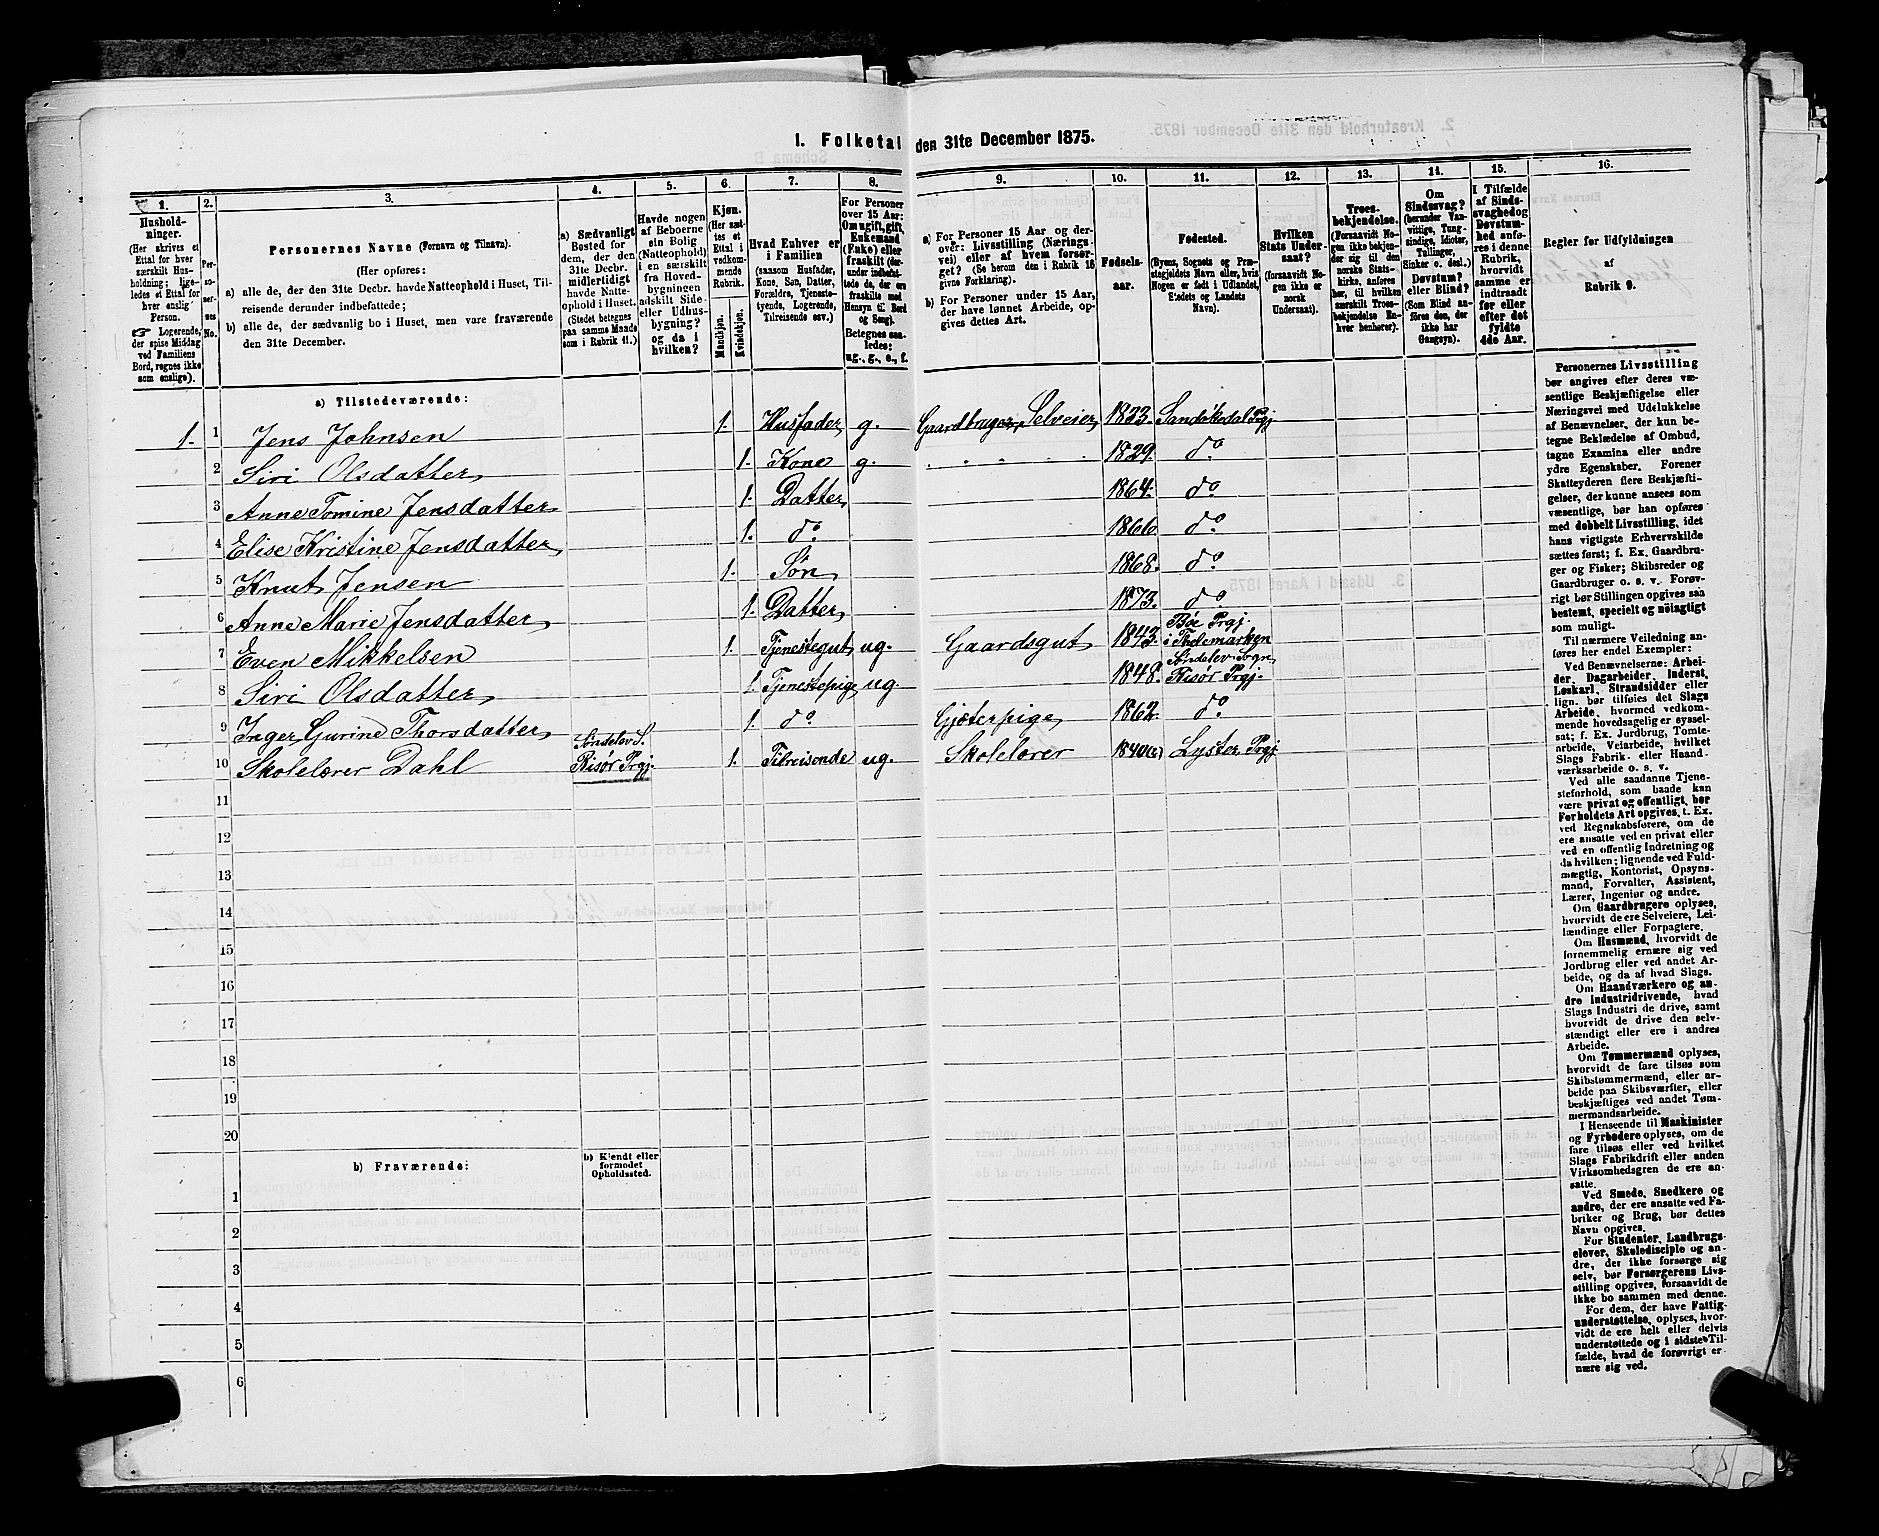 1. Folketal den 31te December 1875.
1.
Hushold-
ninger.
(Her skrives et
Ettal for hver
særskilt Hus-
holdning; lige-
ledes et Ettal for
hver enslig
Person.
☞ Logerende,
der spise Middag
ved Familiens
Bord, regnes ikke
som enslige).
2.
Per-
so-
ner-
nes
No.
3.
Personernes Navne (Fornavn og Tilnavn).
(Her opføres:
a) alle de, der den 31te Decbr. havde Natteophold i Huset, Til-
reisende derunder indbefattede;
b) alle de, der sædvanlig bo i Huset, men vare fraværende
den 31te December.
4.
a) Sædvanligt
Bosted for
dem, der den
31te Decbr.
midlertidigt
havde Natte-
ophold i Huset.
(Stedet betegnes
paa samme Maade
som i Rubrik 11.)
5.
Havde nogen
af Beboerne
sin Bolig
(Natteophold)
i en særskilt
fra Hoved-
bygningen
adskilt Side-
eller Udhus-
bygning?
og da i
hvilken?
6.
Kjøn.
(Her sæt-
tes et
Ettal i
vedkom-
mende
Rubrik.
Mandkjøn.
Kvindekjøn.
7.
Hvad Enhver er
i Familien
(saasom Husfader,
Kone, Søn, Datter,
Forældre, Tjeneste-
tyende, Logerende,
Tilreisende osv.)
8.
For Personer
over 15 Aar:
Om ugift, gift,
Enkemand
(Enke) eller
fraskilt (der-
under indbefat-
tede de, der ere
fraskilte med
Hensyn til Bord
og Seng).
Betegnes saa-
ledes:
ug., g., e., f.
9.
a) For Personer 15 Aar og der-
over: Livsstilling (Nærings-
vei) eller af hvem forsør-
get? (Se herom den i Rubrik 16
givne Forklaring).
b) For Personer under 15 Aar,
der have lønnet Arbeide, op-
gives dettes Art.
10.
Fødsels-
aar.
11.
Fødested.
(Byens, Sognets og Præ-
stegjeldets Navn eller, hvis
Nogen er født i Udlandet,
Stedets og Landets
Navn).
12.
Hvilken
Stats Under-
saat?
(forsaavidt No-
gen ikke er
norsk
Undersaat).
13.
Troes-
bekjendelse.
(Forsaavidt No-
gen ikke bekjen-
der sig til den
norske Stats-
kirke, anføres
her, til hvilken
særskilt Troes-
bekjendelse En-
hver henhører).
14.
Om
Sindssvag?
(herunder Van-
vittige, Tung-
sindige, Idioter,
Tullinger,
Sinker o. desl.)
Døvstum?
eller Blind?
(Som Blind an-
føres den, der
ikke har
Gangsyn).
15.
I Tilfælde
af Sinds-
svaghed og
Døvstum-
hed anfø-
res i denne
Rubrik,
hvorvidt
samme er
indtraadt
før eller
efter det
fyldte
4de Aar.
16.
Regler for Udfyldningen
af
Rubrik 9.
a) Tilstedeværende:
1. 1 Jens Johnsen 1. Husfader g. Gaardbruger, Selveier 1823. Sandøkedal Prgj
2 Siri Olsdatter 1. Kone g. 1829. do
3 Anne Tomine Jensdatter 1. Datter 1864. do
4 Elise Kristine Jensdatter 1. do 1866. do
5 Knut Jensen 1. Søn 1868. do
6 Anne Marie Jensdatter 1. Datter 1873. do
7 Even Mikkelsen 1. Tjenestegut ug. Gaardsgut 1843. Bøe Prgj. i Thelemarken
8 Siri Olsdatter 1. Tjenestepige ug. 1848. Søndelev Sogn Risør Prgj.
9 Inger Gurine Thorsdatter 1. do Gjæterpige 1862. do
10 Skolelærer Dahl Søndelev S. Risør Prgj. 1. Tilreisende ug. Skolelærer 1840 Lyster Prgj
11
12
13
14
15
16
17
18
19
20
b) Fraværende:
b) Kjendt eller
formodet
Opholdssted.
1
2
3
4
5
6
Personernes Livsstilling
bør angives efter deres væ-
sentlige Beskjæftigelse eller
Næringsvei med Udelukkelse
af Benævnelser, der kun be-
tegne Beklædelse af Ombud,
tagne Examina eller andre
ydre Egenskaber. Forener
Skatteyderen flere Beskjæfti-
gelser, der kunne ansees som
væsentlige, bør han opføres
med dobbelt Livsstilling, idet
hans vigtigste Erhvervskilde
sættes først; f. Ex. Gaardbru-
ger og Fisker; Skibsreder og
Gaardbruger o. s. v. Forøv-
rigt bør Stillingen opgives saa
bestemt, specielt og nøiagtigt
som muligt.
Til nærmere Veiledning an-
føres her endel Exempler:
Ved Benævnelserne: Arbei-
der, Dagarbeider, Inderst,
Løskarl, Strandsidder eller
lign. bør tilføies det Slags
Arbeide, hvormed vedkom-
mende hovedsagelig er syssel-
sat; f. Ex. Jordbrug, Tomte-
arbeide, Veiarbeide, hvilket
Slags Fabrik- eller Haand-
værksarbeide o. s. v.
Ved alle saadanne Tjene-
steforhold, som baade kan
være privat og offentligt, bør
Forholdets Art opgives, t. Ex.
ved Regnskabsførere, om de
ere ansatte ved en privat eller
ved en offentlig Indretning og
da hvilken; lignende ved Fuld-
mægtig, Kontorist, Opsyns-
mand, Forvalter, Assistent,
Lærer, Ingeniør og andre.
Om Gaardbrugere oplyses,
hvorvidt de ere Selveiere, Lei-
lændinge eller Forpagtere.
Om Husmænd, hvorvidt de
fornemmelig ernære sig ved
Jordbrug eller ved andet Ar-
beide, og da af hvad Slags.
Om Haandværkere og an-
dre Industridrivende, hvad
Slags Industri de drive, samt
hvorvidt de drive den selv-
stændigt eller ere i andres
Arbeide.
Om Tømmermænd oplyses,
hvorvidt de fare tilsøs som
Skibstømmermænd, eller ar-
beide paa Skibsværfter, eller
beskjæftiges ved andet Tøm-
mermandsarbeide.
I Henseende til Maskinister
og Fyrbødere oplyses, om de
fare tilsøs eller ved hvilket
Slags Fabrikdrift eller anden
Virksomhedsgren de ere an-
satte.
Ved Smede, Snedkere og
andre, der ere ansatte ved Fa-
briker og Brug, bør dettes
Navn opgives.
For Studenter, Landbrugs-
elever, Skoledisciple og an-
dre, der ikke forsørge sig
selv, bør Forsørgerens Livs-
stilling opgives, forsaavidt de
ikke bo sammen med denne.
For dem, der have Fattig-
understøttelse, oplyses, hvor-
vidt de ere helt eller delvis
understøttede og i sidste Til-
fælde, hvad de forøvrigt er-
nære sig ved.